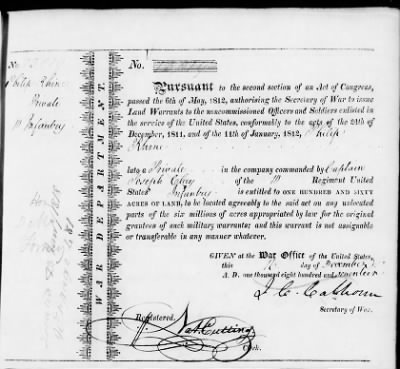 No.
Philip Rhine
Private
Infantry
WAR DEPARTMENT.
No.
Pursuant to the second section of an Act of Congress,
passed the 6th of May, 1812, authorising the Secretary of War to issue
Land Warrants to the noncommissioned Officers and Soldiers enlisted in
the service of the United States, conformably to the acts of the 24th of
December, 1811, and of the 11th of January, 1812, Philip
Rhine
late a Private in the company commanded by Captain
Joseph of the Regiment United
States Infantry is entitled to ONE HUNDRED AND SIXTY
ACRES OF LAND, to be located agreeably to the said act on any unlocated
parts of the six millions of acres appropriated by law for the original
grantees of such military warrants; and this warrant is not assignable
or transferable in any manner whatever.
GIVEN at the War Office of the United States,
this day of December
A. D. one thousand eight hundred and seventeen
J. C. Calhoun
Secretary of War.
Registered.
Nat Cutting
Clerk.